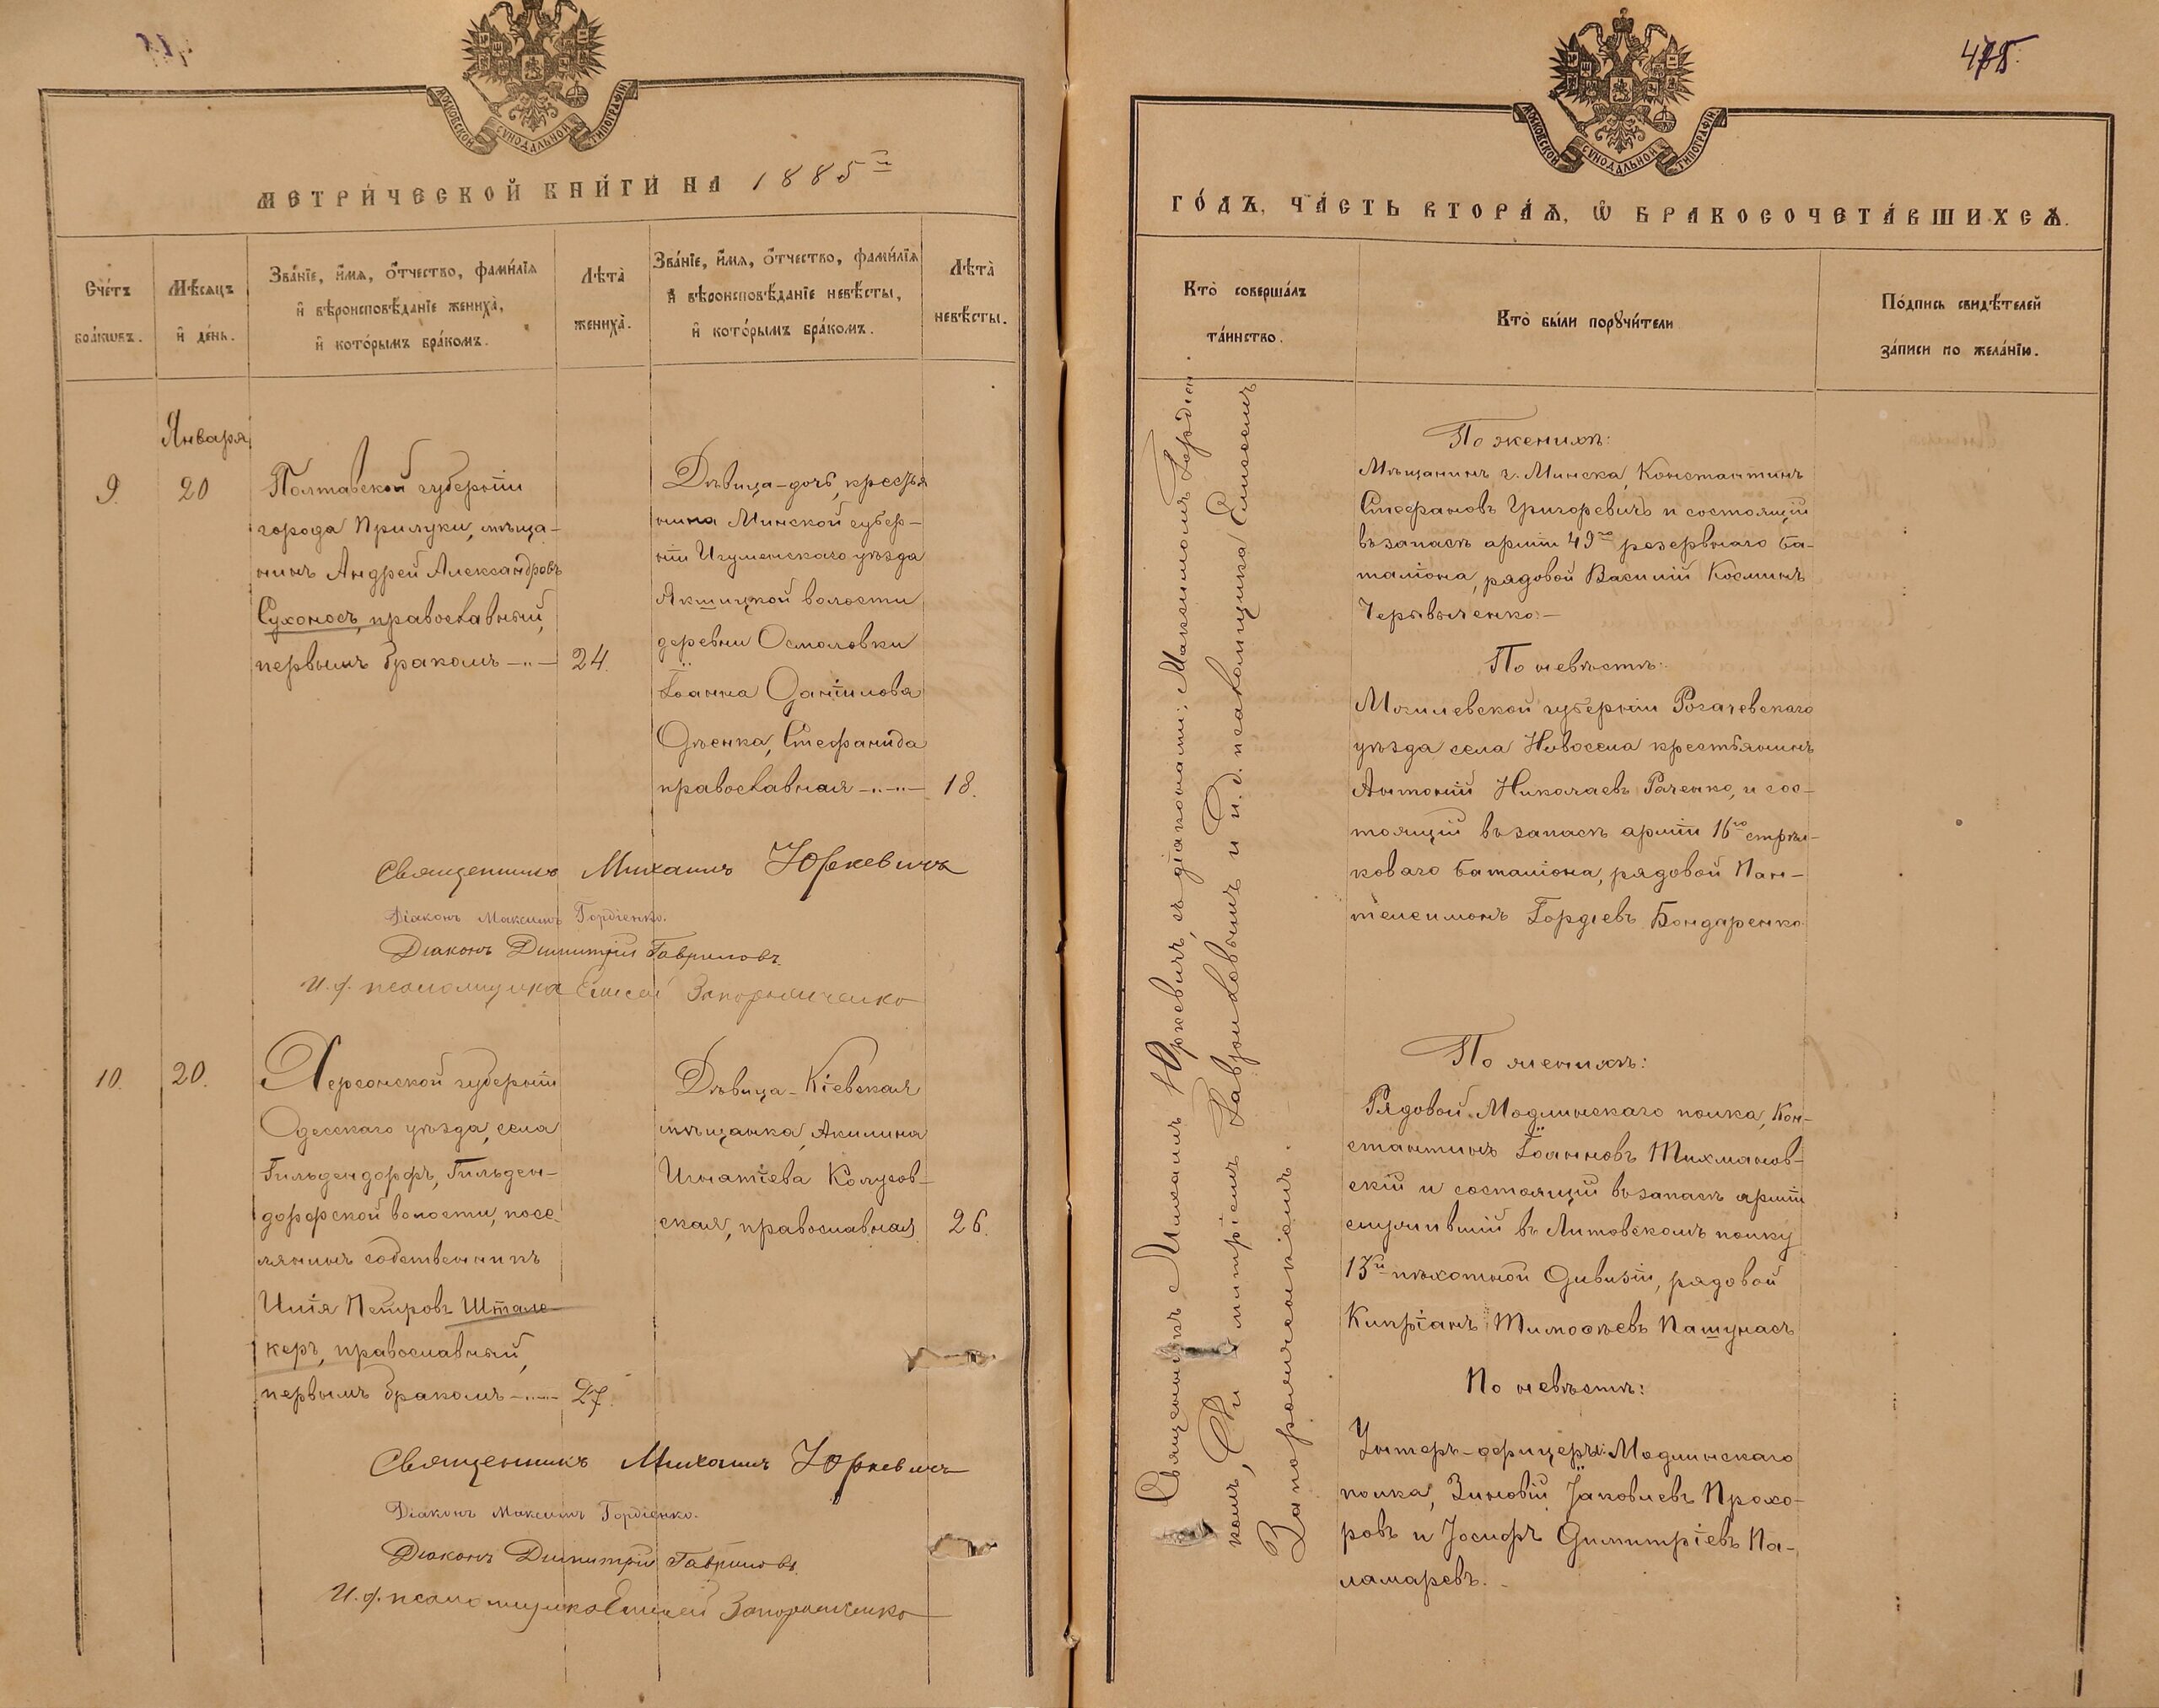 МОСКОВСКОЙ СѴНОДАЛЬНОЙ ТИПОГРАФІИ
МЕТРИ́ЧЕСКОЙ КНИ́ГИ НА 1885й
Сче́тъ бра́кѡвъ.
Мѣ́сяцъ и҆ де́нь.
Зва́нїе, и҆́мя, ѻ҆́тчество, фами́лїя
и҆ вѣроисповѣ́данїе жениха̀,
и҆ кото́рымъ бра́комъ.
Лѣ́та̀
жениха̀.
Зва́нїе, и҆́мя, ѻ҆́тчество, фами́лїя
и҆ вѣроисповѣ́данїе невѣ́сты,
и҆ кото́рымъ бра́комъ.
Лѣ́та̀
невѣ́сты.
Января
9.
20
Полтавской губерніи
города Прилуки, мѣща-
нинъ Андрей Александровъ
Сухоносъ, православный,
первымъ бракомъ —..—
24.
Дѣвица-дочь, крестья
нина Минской губер-
ніи Игуменскаго уѣзда
Якшицкой волости
деревни Осмоловки
Іоанна Даніилова
Стефанида
православная —..—..—
18.
Священникъ Михаилъ Юркевичъ
Діаконъ Максимъ Гордіенко.
Діаконъ Димитрій Гавриловъ.
И. д. псаломщика Елисей Запорожченко
10.
20.
Херсонской губерніи
Одесскаго уѣзда, села
Гильдендорфъ, Гильден-
дорфской волости, посе-
лянинъ собственникъ
Илія Петровъ Штале-
керъ, православный,
первымъ бракомъ —..—..—
27.
Дѣвица-Кіевская
мѣщанка, Акилина
Игнатіева Колусов-
ская, православная
26.
Священникъ Михаилъ Юркевичъ
Діаконъ Максимъ Гордіенко.
Діаконъ Димитрій Гавриловъ.
И. д. псаломщика Елисей Запорожченко
МОСКОВСКОЙ СѴНОДАЛЬНОЙ ТИПОГРАФІИ
ГО́ДЪ, ЧА́СТЬ ВТОРА́Я, Ѡ҆ БРАКОСОЧЕТА́ВШИХСЯ.
Кто̀ соверша́лъ
та́инство.
Кто̀ бы́ли порꙋчи́тели
По́дпись свидѣ́телей
за́писи по жела́нїю.
Священникъ Михаилъ Юркевичъ, съ діаконами: Максимомъ Гордіен
комъ, Димитріемъ Гавриловымъ и и. д. псаломщика Елисеемъ
Запорожченкомъ.
По женихѣ:
Мѣщанинъ г. Минска, Константинъ
Стефановъ Григоревичъ и состоящій
въ запасѣ арміи 49го резервнаго ба-
таліона, рядовой Василій Косминъ
По невѣстѣ:
Могилевской губерніи Рогачевскаго
уѣзда села Новосела крестьянинъ
Антоній Николаевъ Раченко, и сос-
тоящій въ запасѣ арміи 16го стрѣл-
коваго баталіона, рядовой Пан-
телеимонъ Гордіевъ Бондаренко
По женихѣ:
Рядовой Модлинскаго полка, Кон-
стантинъ Іоанновъ Тихманов-
скій и состоящій въ запасѣ арміи
служившій въ Литовскомъ полку
13й пѣхотной дивизіи, рядовой
Кипріанъ Тимофѣевъ Пашунасъ
По невѣстѣ:
Унтеръ-офицеры: Модлинскаго
полка, Зиновій Іаковлевъ Прохо-
ровъ и Іосифъ Димитріевъ Па-
ламаревъ.